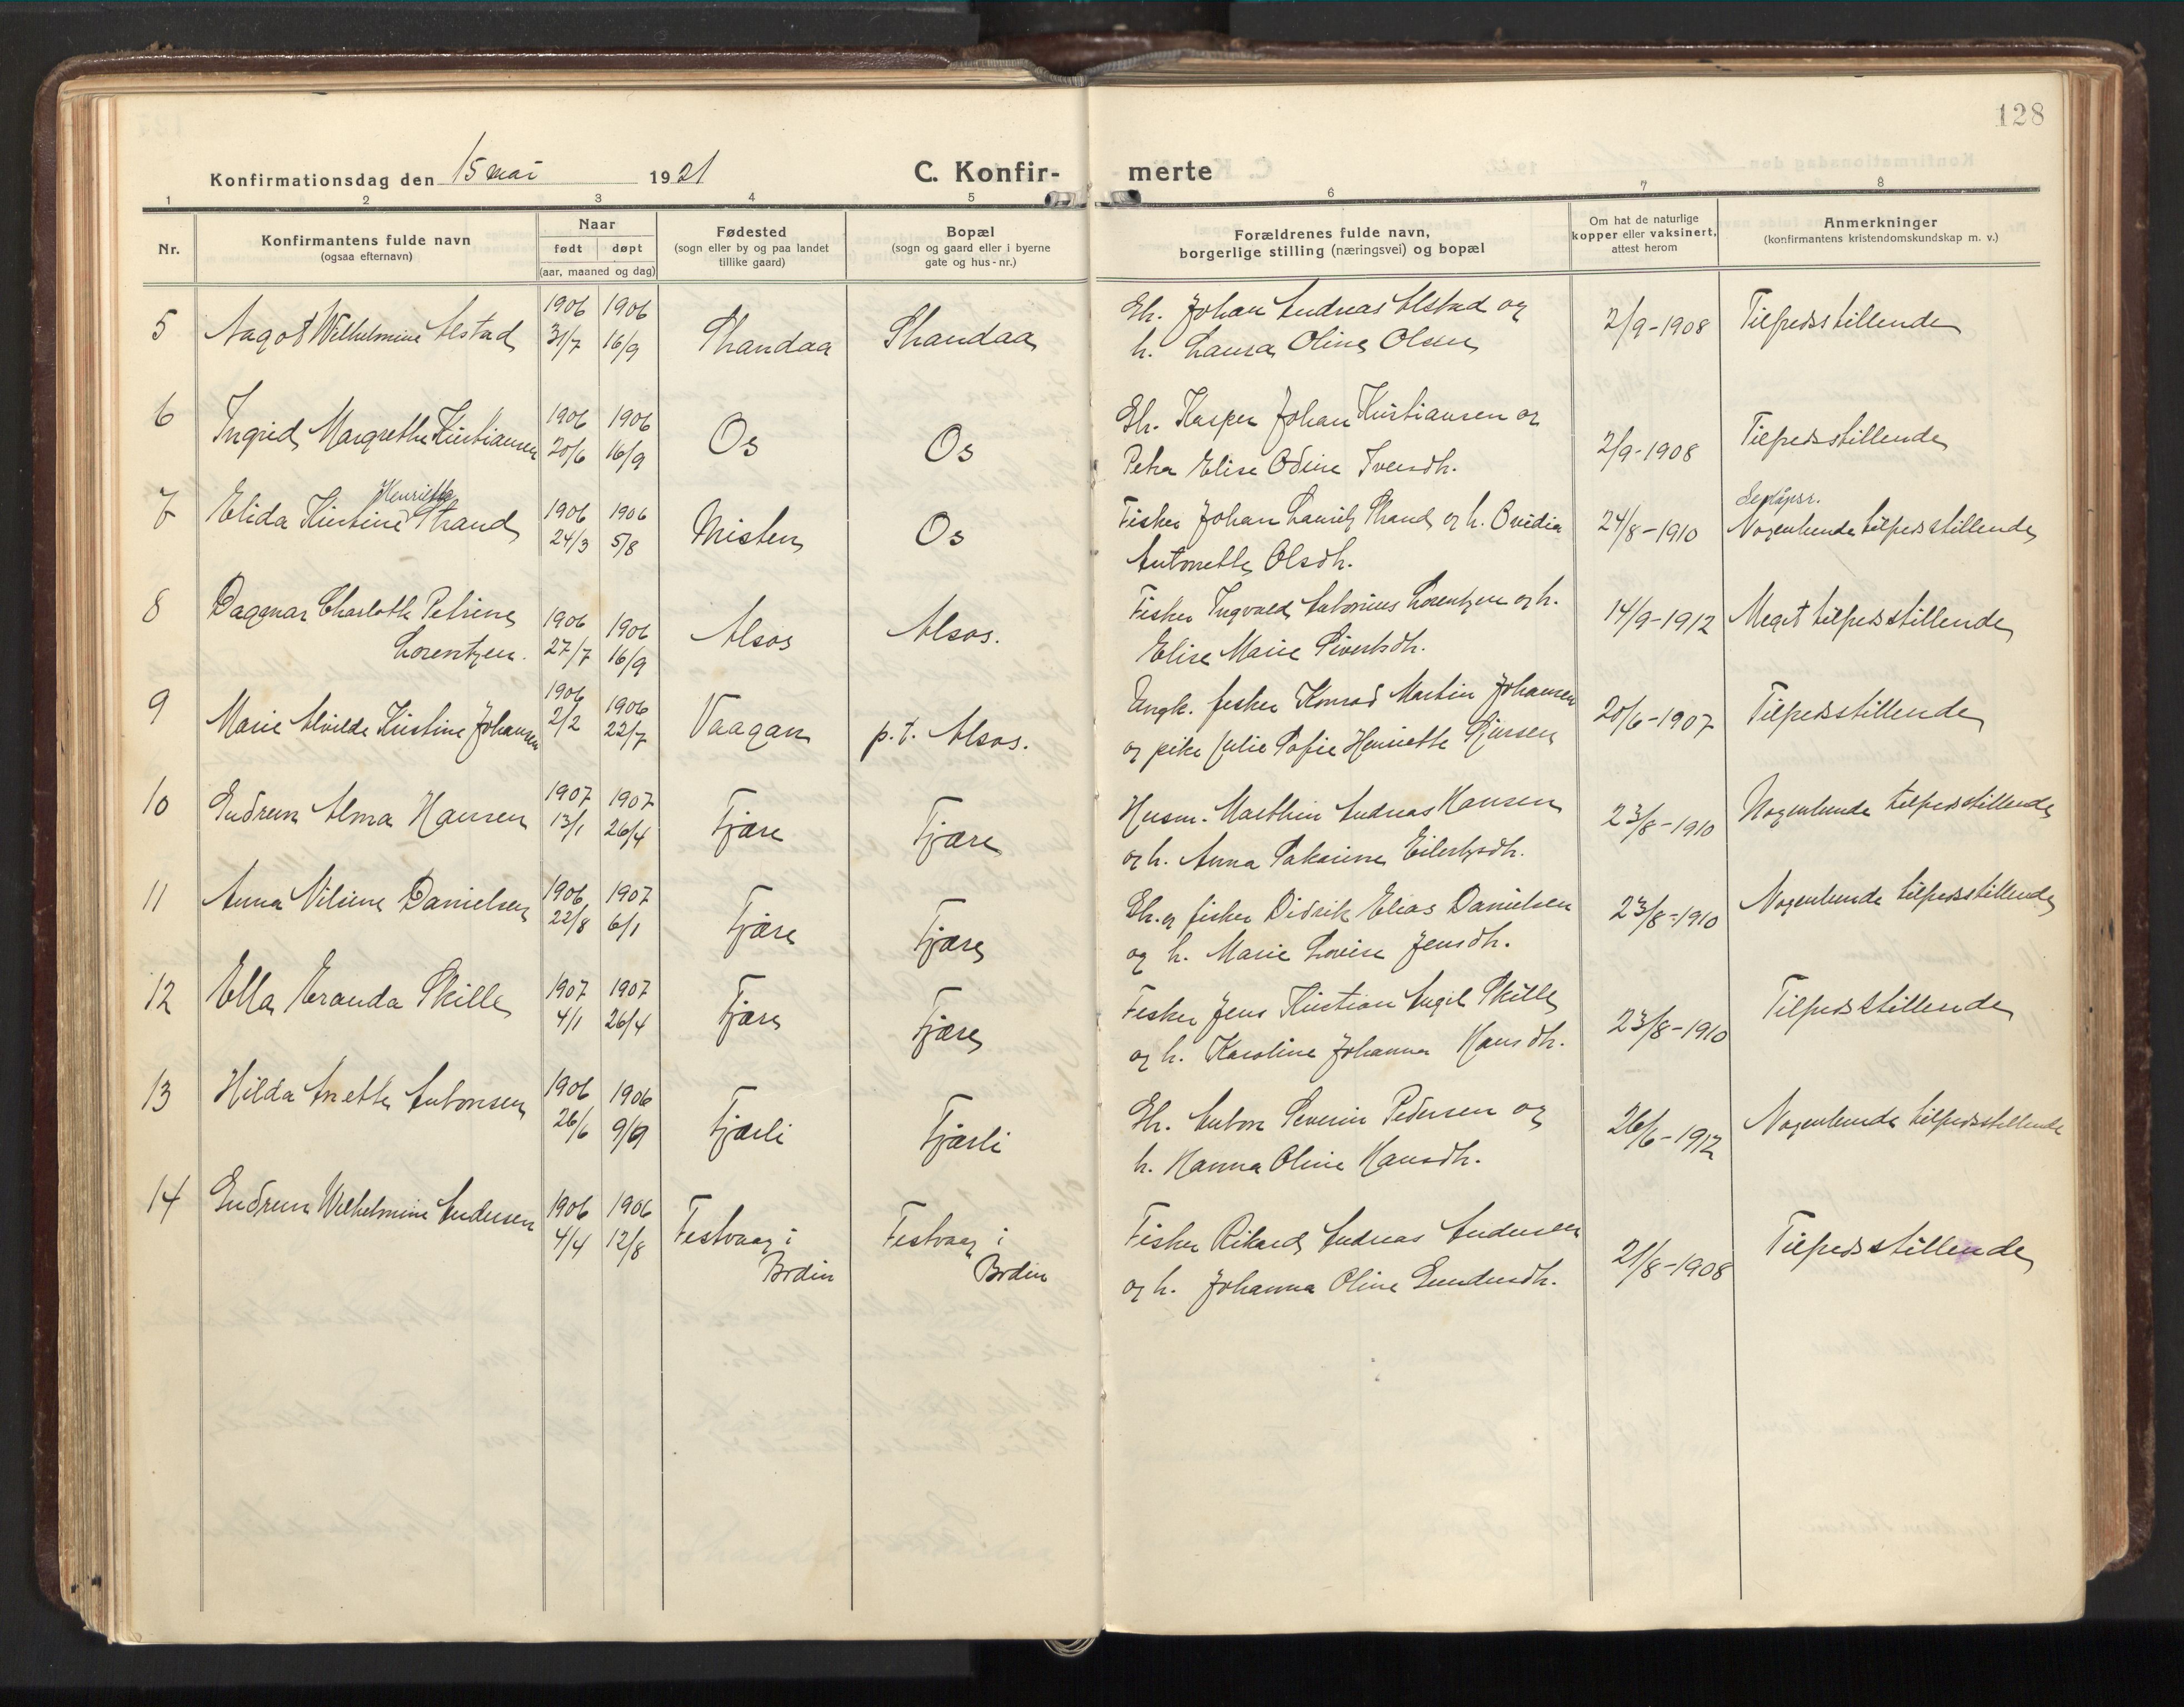 128
Konfirmationsdag den 15 mai 1921
C. Konfir- merte
1 2 3 4 5 6 7 8
Nr.
Konfirmantens fulde navn
(ogsaa efternavn)
Naar
født døpt
(aar, maaned og dag)
Fødested
(sogn eller by og paa landet
tillike gaard)
Bopæl
(sogn og gaard eller i byerne
gate og hus-nr.)
Forældrenes fulde navn,
borgerlige stilling (næringsvei) og bopæl
Om hat de naturlige
kopper eller vaksinert,
attest herom
Anmerkninger
(konfirmantens kristendomskundskap m. v.)
5 Aagot Wilhelmine Alstad 1906 31/7 1906 16/9 Skandaa Skandaa
Gh. Johan Andreas Alstad og
h. Laura Oline Olsen
2/9-1908 Tilfredsstillende
6 Ingrid Margrethe Kristiansen 1906 20/6 1906 16/9 Os Os
Gh. Kasper Johan Kristiansen og
Petra Elise Odine Iversdh.
2/9-1908 Tilfredsstillende
7 Elida Kristine Henriette Strand 1906 24/3 1906 5/8 Misten Os
Fisker Johan Lauritz Strand og h. Ovidia
Antonette Olsdh.
24/8-1910
Nogenlunde tilfredsstillende
8 Dagmar Charlotte Petrine
Lorentzen. 1906 27/7 1906 16/9 Alsos Alsos.
Fisker Ingvald Antonius Lorentzen og h.
Elise Marie Sivertsdh.
14/9-1912 Meget tilfredsstillende
9 Marie Alvilde Kristine Johansen 1906 2/2 1906 22/7 Vaagan p.t. Alsos.
Ungk. fisker Konrad Martin Johansen
og pike Julie Sofie Henriette
20/6-1907 Tilfredsstillende
10 Gudrun Alma Hansen 1907 13/1 1907 26/4 Fjære Fjære
Husm. Marthin Andreas Hansen
og h. Anna Sakarine Eilertsdh.
23/8-1910 Nogenlunde tilfredsstillende
11 Anna Viline Danielsen 1906 22/8 1907 6/1 Fjære Fjære
Gh. og fisker Didrik Elias Danielsen
og h. Marie Lovise Jensdh.
23/8-1910 Nogenlunde tilfredsstillende
12 Ella Eranda Skille 1907 4/1 1907 26/4 Fjære Fjære
Fisker Jens Kristian Angel Skille
og h. Karoline Johanna Hansdh.
23/8-1910 Tilfredsstillende
13 Hilda Anette Antonsen 1906 26/6 1906 9/9 Fjærli Fjærli
Gh. Anton Severin Pedersen og
h. Hanna Oline Hansdh.
26/6-1912 Nogenlunde tilfredsstillende
14 Gudrun Wilhelmine Andersen 1906 4/4 1906 12/8 Festvaag i
Bodin Festvaag i
Bodin
Fisker Rikard Andreas Andersen
og h. Johanna Oline Gundersdh.
21/8-1908 Tilfredsstillende